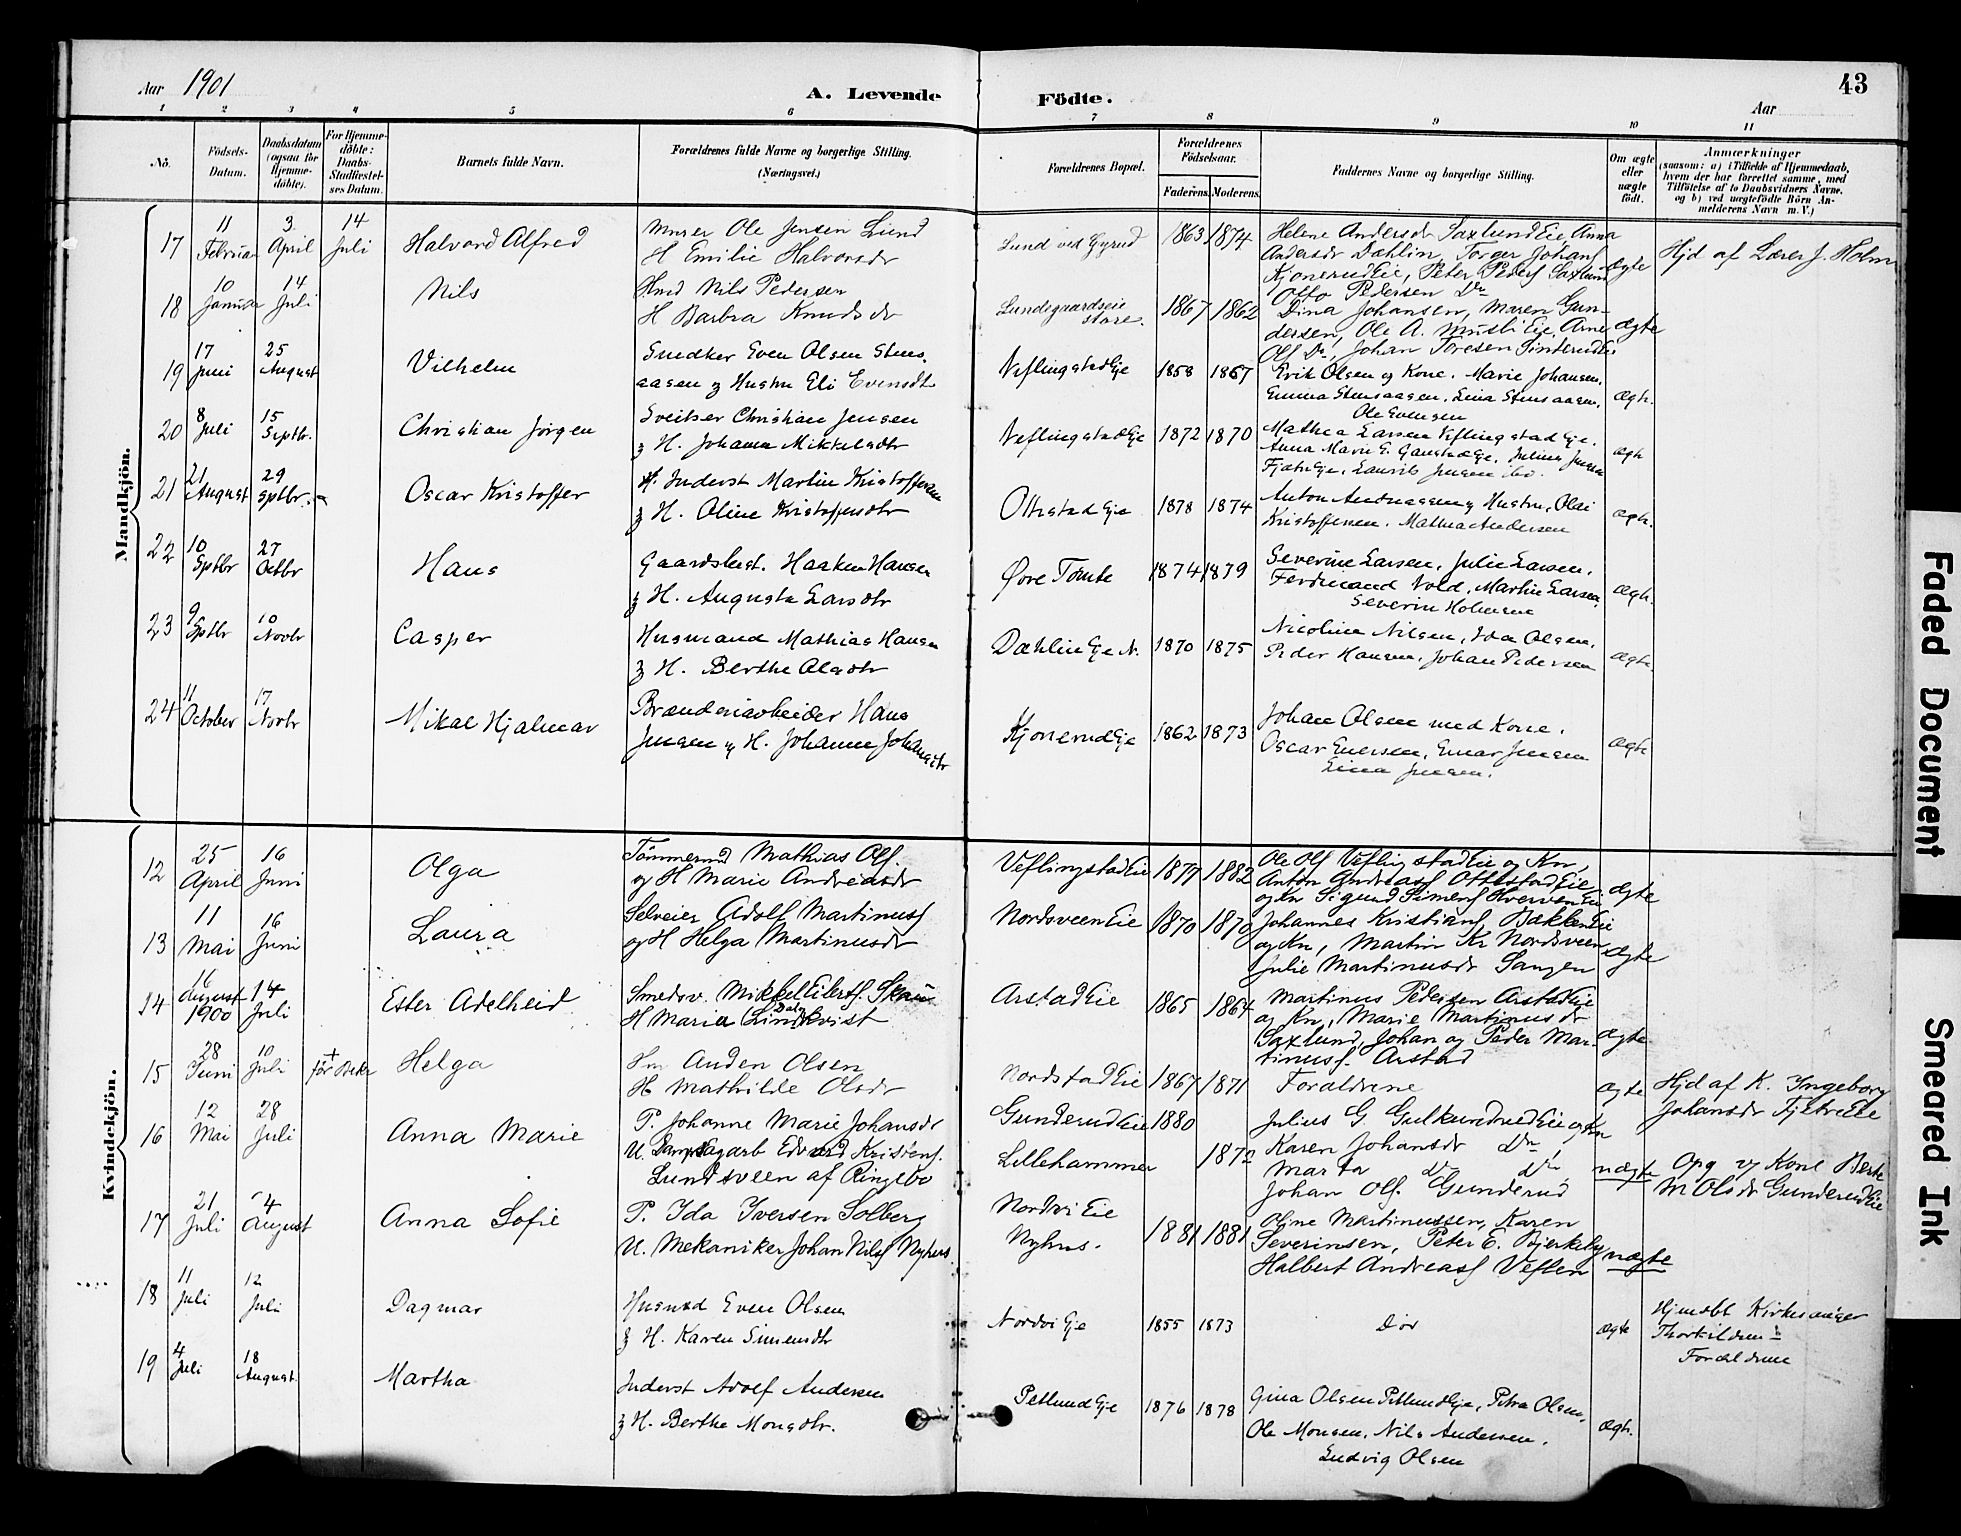 Aar 1901
A. Levende Födte.
Aar
43
1 2 3 4 5 6 7 8 9 10 11
No.
Födsels-Datum.
Daabsdatum (ogsaa for Hjemmedöbte).
For Hjemmedöbte: Daabs-Stadfæstelses Datum.
Barnets fulde Navn.
Forældrenes fulde Navne og borgerlige Stilling.
(Næringsvei.)
Forældrenes Bopæl.
Forældrenes Födselsaar.
Faderens. Moderens.
Faddernes Navne og borgerlige Stilling.
Om ægte eller uægte födt.
Anmærkninger
(saasom: a) i Tilfælde af Hjemmedaab,
hvem der har forrettet samme, med
Tilföielse af to Daabsvidners Navne,
og b) ved uægtefödte Börn Anmelderens Navn m. V.)
Mandkjön.
17 11 Februar 3 April 14 Juli Halvard Alfred
Murer Ole Jensen Lund
H Emilie Halvorsdr
Lund ved Gyrud 1863 1874
Helene Andersdr Saxlund Eie, Anna
Andersdr Dæhlin, Torger Johans
Kjonerud Eie, Peter Peders Saxlund
Otto Pedersen Do
ægte
Hjd af Lærer J. Holm
18 10 Januar 14 Juli Nils
Hmd Nils Pedersen
H Barbra Knudsdr
Lundsgaardseie store. 1867 1862
Dina Johansen, Maren Gundersen, Ole A. Musli Eie, Arne
Ols Do, Johan Toresen Sinterud Ei
ægte
19 17 Juni 25 August Vilhelm
Snedker Even Olsen Stensaasen & Hustru Eli Evensdtr
Veflingstad Eje 1858 1867
Erik Olsen og Kone. Marie Johansen.
Emma Stensaasen. Lina Stensaasen.
Ole Evensen
ægte.
20 8 Juli 15 Septbr. Christian Jørgen
Sveitser Christian Jensen
& H. Johanne Mikkelsdtr
Veflingstad Eje 1872 1870
Mathea Larsen Veflingstad Eje.
Anna Marie E. Gaustad Eje. Julius Jensen
Fjætre Eje, Laurits Jensen ibd.
ægte
21 21 August 29 Septbr. Oscar Kristoffer
Inderst Martin Kristoffersen
& H. Oline Kristoffersdtr
Ottestad Eje 1878 1874
Anton Andreassen & Hustru, Olai
Kristoffersen. Mathea Andersen
ægte.
22 10 Sptbr 27 Octbr Hans
Gaardsbest. Haaken Hansen
& H. Augusta Larsdtr
Øvre Tømte 1874 1879
Severine Larsen, Julie Larsen,
Ferdinand Vold, Martin Larsen,
Severin Holmen
ægte.
23 9 Sptbr 10 Novbr Casper
Husmand Mathias Hansen
& H. Berthe Olsdtr
Dæhlin Eje N. 1870 1875
Nicoline Nilsen, Ida Olsen,
Peder Hansen, Johan Pedersen
ægte.
24 11 October 17 Novbr Mikal Hjalmar
Brænderiarbeider Hans
Jensen & H. Johanne Johansdtr
Kjonerud Eje 1862 1873
Johan Olsen med Kone.
Oscar Evensen, Einar Jensen
Lina Jensen.
ægte
Kvindekjön.
12 25 April 16 Juni Olga
Tömmermd Mathias Ols.
og H Marie Andreasdr
Veflingstad Eie 1877 1882
Ole Ols Veflingstad Eie og Kn,
Anton Andreass Ottestad Eie
og Kn Sigurd Simens Hverven Eie
ægte
13 11 Mai 16 Juni Laura
Selveier Adolf Martinuss
og H Helga Martinusdr
Nordsveen Eie 1870 1870
Johannes Kristians, Bakken Eie
og Kn, Martin Kr Nordsveen
Julie Martinusdr Sangen
ægte
14 16 August 1900 14 Juli Ester Adelheid
Smedsv. Mikkel Eilerts. Skau
H Maria Lindkvist
Arstad Eie 1865 1864
Martinus Pedersen Arstad Eie
og Kn, Marie Martinusdr
Saxlund, Johan og Peder Martinuss. Arstad
ægte
15 28 Juni 10 Juli † før Bekr Helga
Hm Anden Olsen
H Mathilde Olsdr
Nordstad Eie 1867 1871
Forældrene
ægte
Hjd af K. Ingeborg
Johansdr Fjetre Eie
16 12 Mai 28 Juli Anna Marie
P. Johanne Marie Johansdr
U. Dampsagarb Edvard Kristens.
Lundsveen af Ringebo
Gunderud Eie 1880
Lillehammer 1872
Julius G Gulkundrud Eie og Kn
Karen Johansdr Do,
Marta Do Do
Johan Ols. Gunderud
uægte
Opg og Kone Berte
M Olsdr Gunderud Eie
17 21 Juli 4 August Anna Sofie
P. Ida Iversen Solberg
U. Mekaniker Johan Nils Nyhus
Nordvi Eie
Nyhus. 1881 1881
Oline Martinussen, Karen
Severinsen, Peter E. Bjerkeby
Halbert Andreass Veflen
uægte
18 11 Juli 12 Juli Dagmar
Husmd Even Olsen
& H. Karen Simensdtr
Nordvi Eje 1855 1873
Død
ægte
Hjemdbt Kirkesanger
Thorkildsen
Forældrene
19 4 Juli 18 August. Martha
Inderst Adolf Andersen
& H. Berthe Monsdtr.
Petlund Eje 1876 1878
Gina Olsen Petlund Eje, Petra Olsen,
Ole Monsen, Nils Andersen.
Ludvig Olsen
ægte.
Faded Document
Smeared Ink